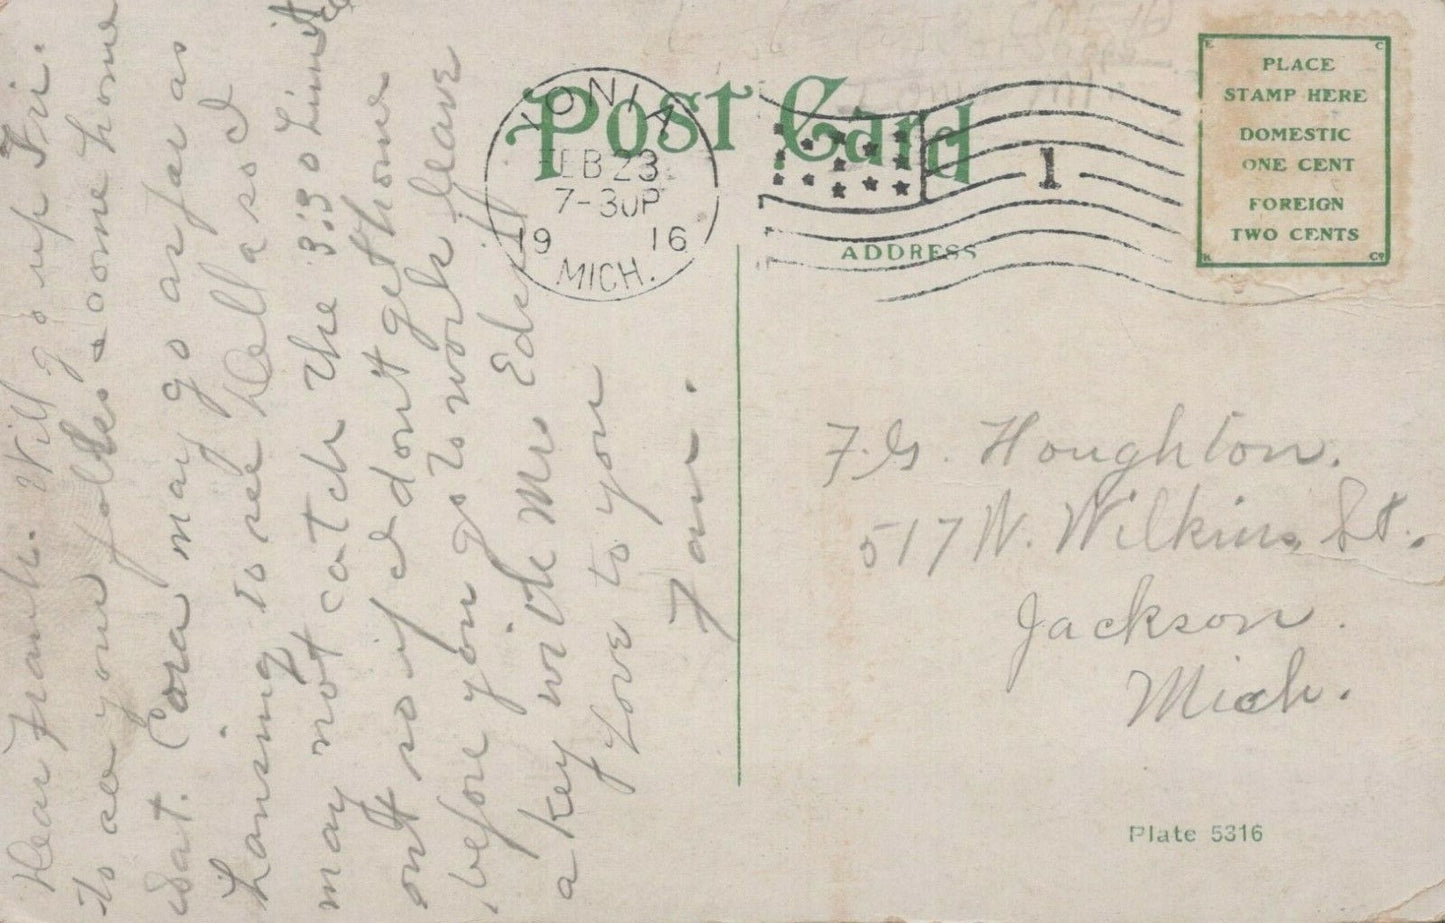 POST CARD
IONIA
FEB 23
7-30P
1916
MICH.
1
ADDRESS
PLACE
STAMP HERE
DOMESTIC
ONE CENT
FOREIGN
TWO CENTS
Dear Frank. Will go up Fri.
to see your folks & come home
Sat. Cora may go as far as
Lansing to see Dell a so I
may not catch the 3:30 Limited
out so if I don't get home
before you go to work leave
a key with Mrs
Love to you
Fan.
F.G. Houghton.
517 N. Wilkins St.
Jackson.
Mich.
Plate 5316